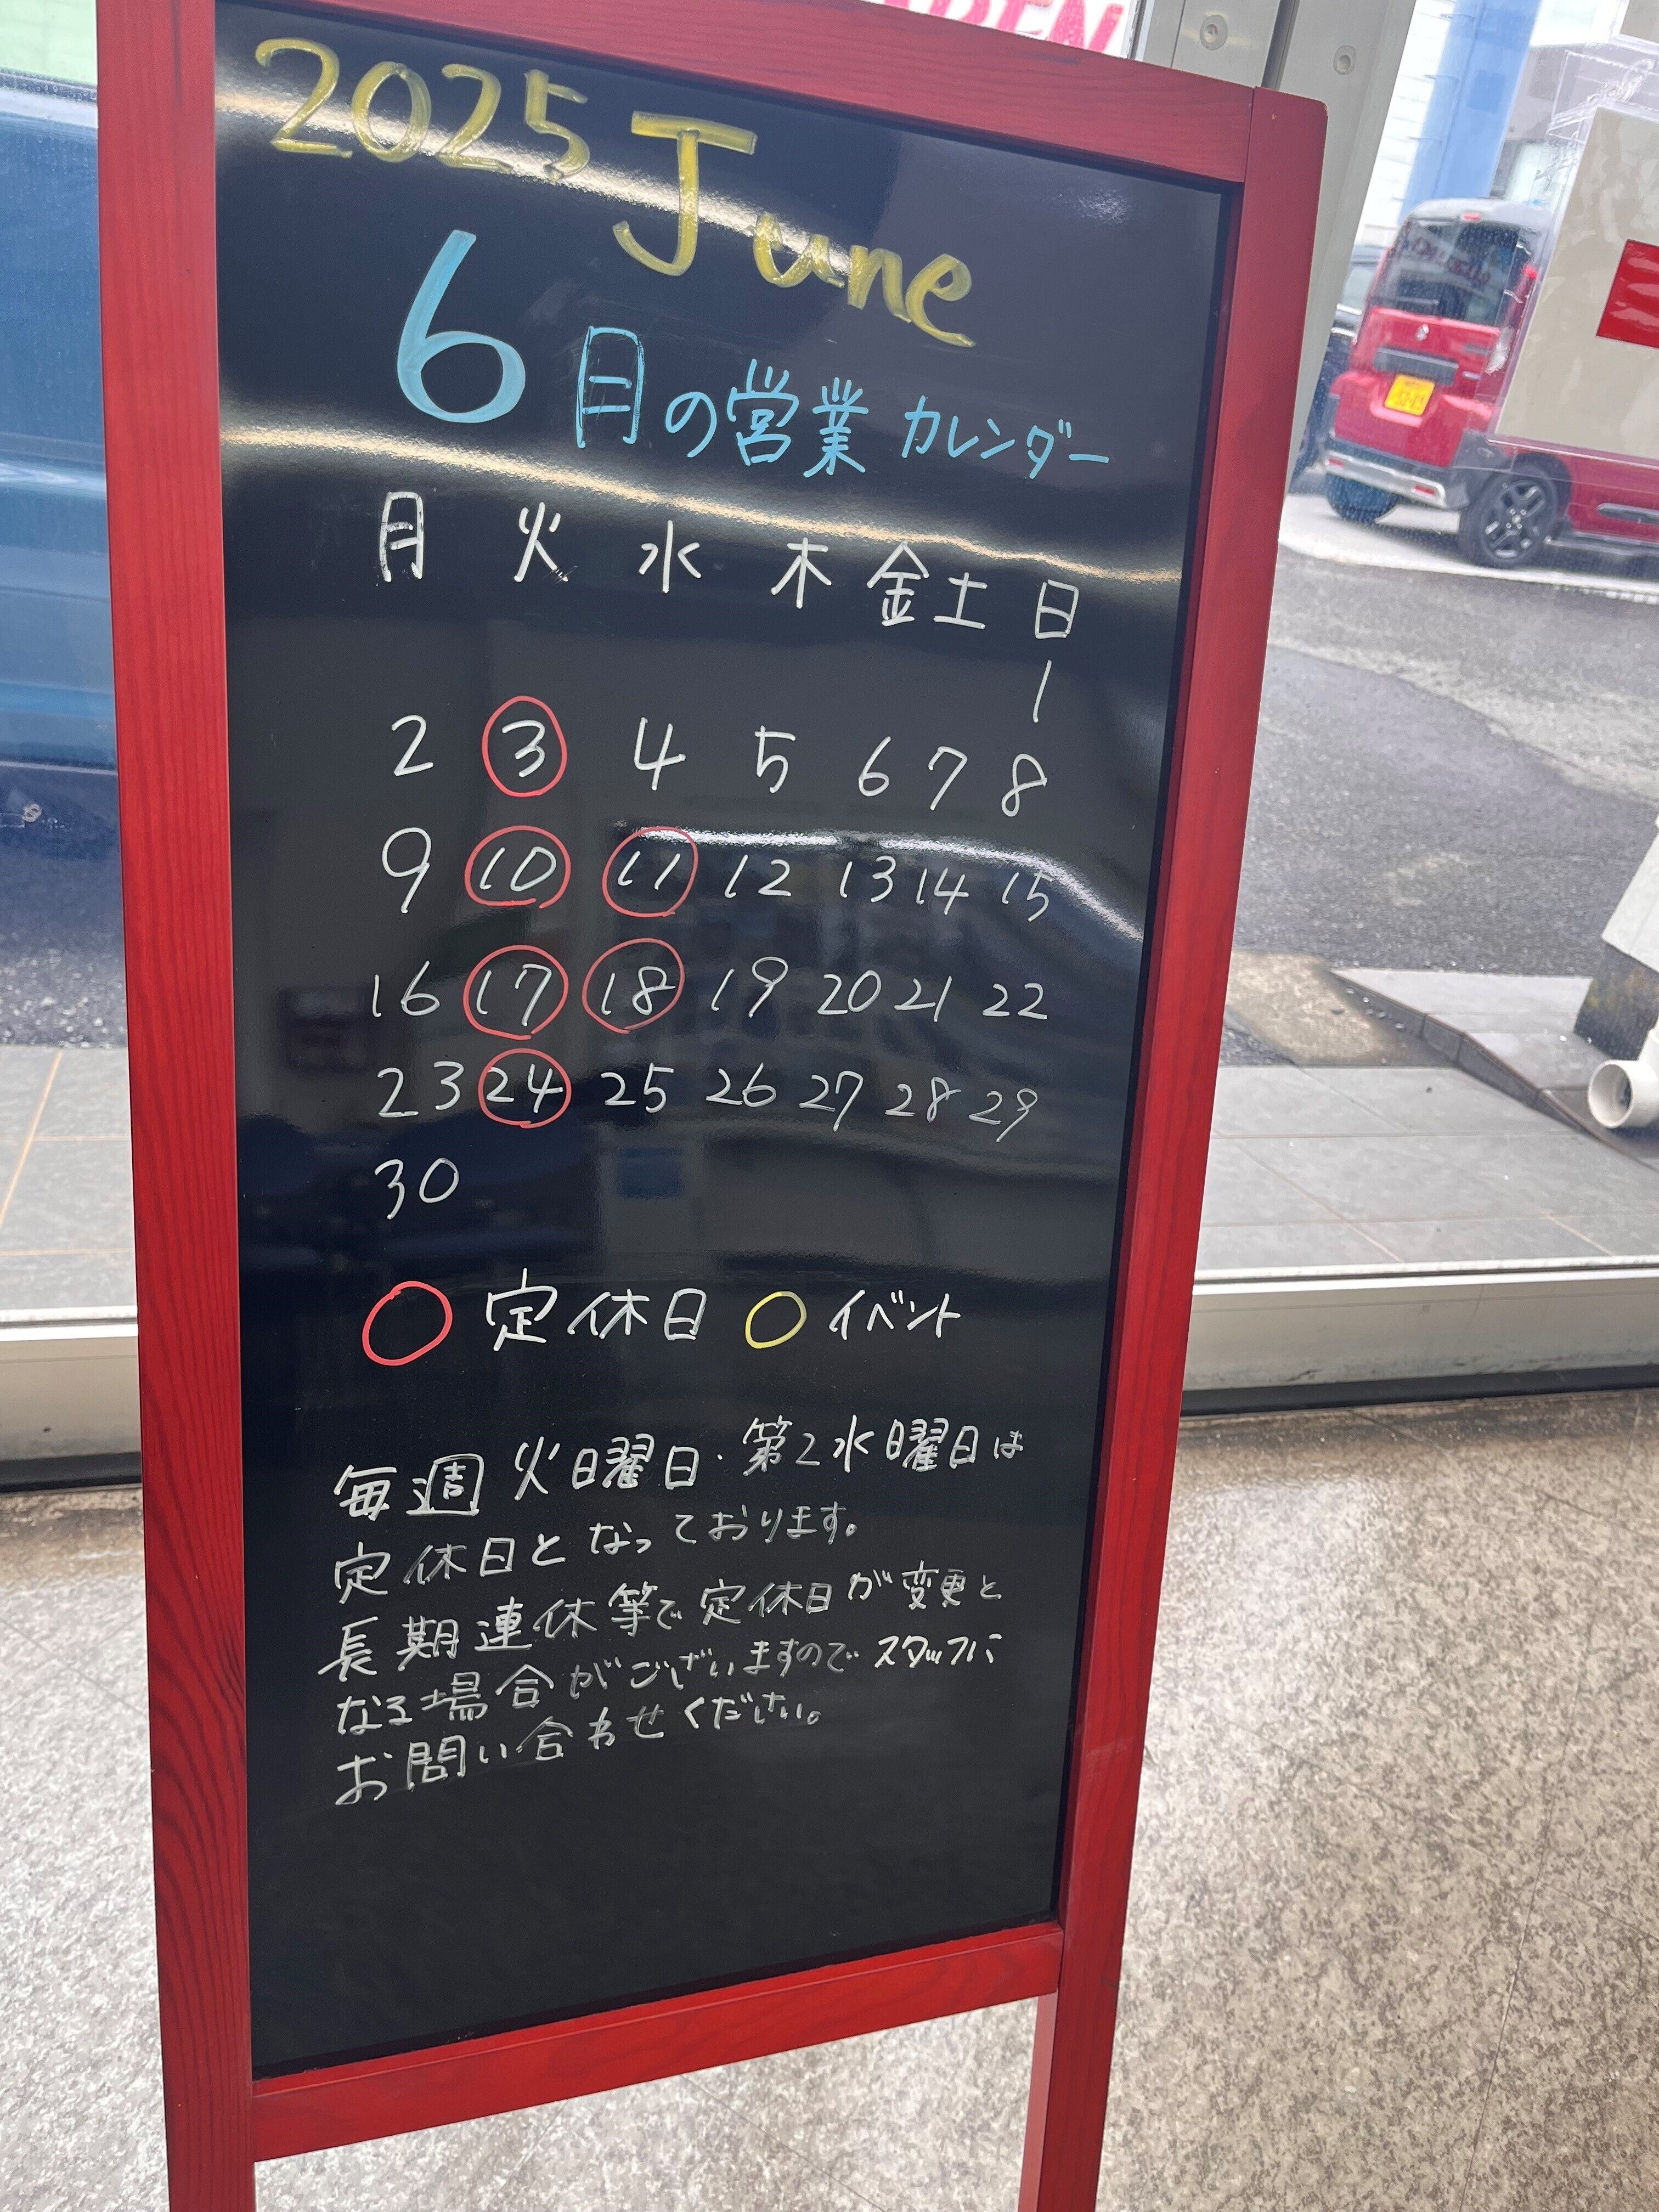 2025 June
6月の営業カレンダー
月 火 水 木 金 土 日
1
2 3 4 5 6 7 8
9 10 11 12 13 14 15
16 17 18 19 20 21 22
23 24 25 26 27 28 29
30
定休日 イベント
毎週 火曜日・第2水曜日は
定休日となっております。
長期連休等で定休日が変更と
なる場合がございますのでスタッフに
お問い合わせください。